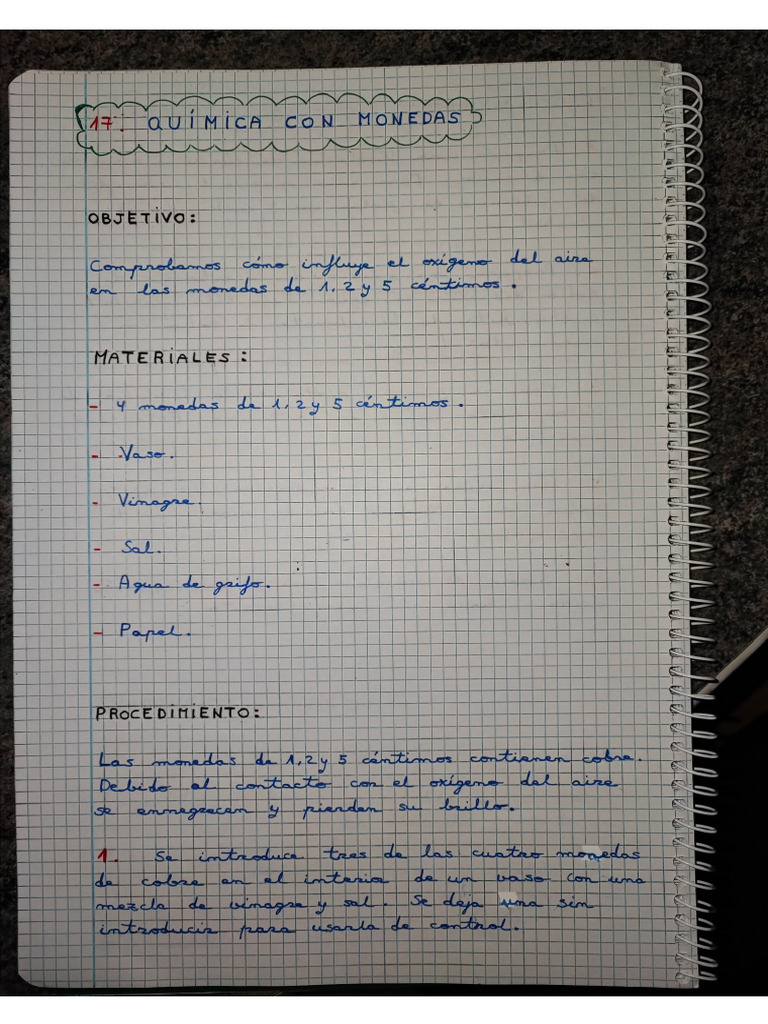 17: QUÍMICA CON MONEDAS
OBJETIVO:
Comprobamos cómo influye el oxígeno del aire
en las monedas de 1, 2 y 5 céntimos.
MATERIALES:
- 4 monedas de 1, 2 y 5 céntimos.
- Vaso.
- Vinagre.
- Sal.
- Agua de grifo.
- Papel.
PROCEDIMIENTO:
Las monedas de 1, 2 y 5 céntimos contienen cobre.
Debido al contacto con el oxígeno del aire
se ennegrecen y pierden su brillo.
1. Se introduce tres de las cuatro monedas
de cobre en el interior de un vaso con una
mezcla de vinagre y sal. Se deja una sin
introducir para usarla de control.